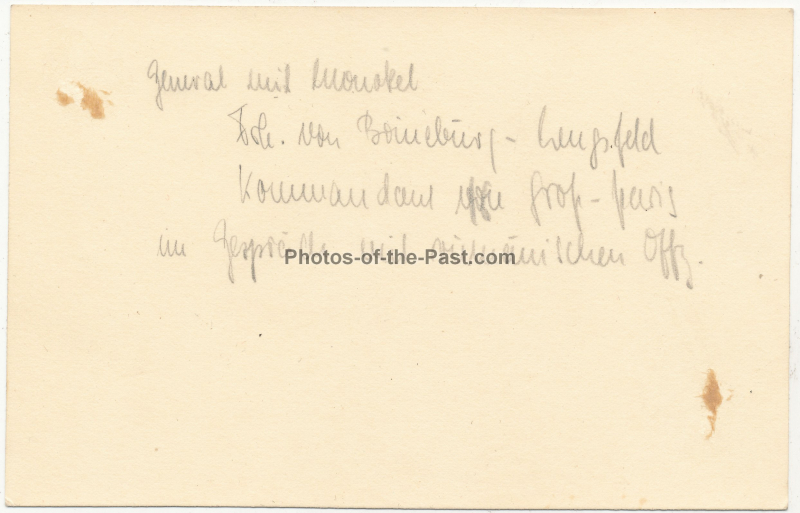 General mit Monokel
Frh. von Boineburg - Lengsfeld
Kommandant von Groß-Paris
im Gespräch mit rumänischen Offz.
Photos-of-the-Past.com